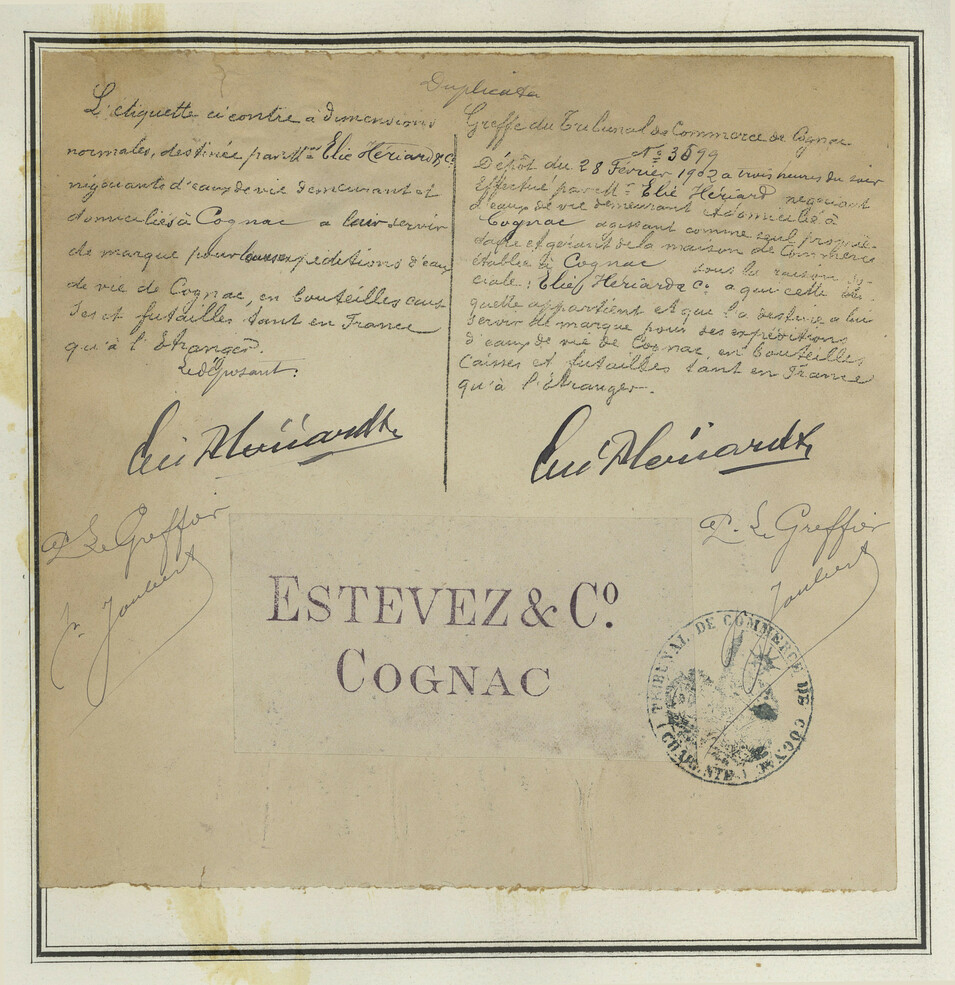 Duplicata
L'etiquette ci contre à dimensions
normales, destinée par Mrs Elie Hériard & Co
négociants d'eaux de vie demeurant et
domiciliés à Cognac a leur servir
de marque pour leurs expeditions d'eau
de vie de Cognac, en bouteilles cais
ses et futailles tant en France
qu'à l'Etranger.
Le déposant:
Elie Hériard & Co
P. Le Greffier
Joubert
Greffe du Tribunal de Commerce de Cognac
No 3599
Dépôt du 28 Février 1902 a trois heures du soir
Effectué par M. Elie Hériard négociant
d'eaux de vie demeurant et domicilié à
Cognac agissant comme seul proprié-
taire et gérant de la maison de Commerce
établie à Cognac sous la raison so-
ciale: Elie Hériard & Co a qui cette éti-
quette appartient et que l'a destine a lui
servir de marque pour ses expéditions
d'eaux de vie de Cognac, en bouteilles,
Caisses et futailles tant en France
qu'à l'étranger.
Elie Hériard & Co
P. Le Greffier
Joubert
ESTEVEZ & Co.
COGNAC
TRIBUNAL DE COMMERCE DE COGNAC
(CHARENTE)